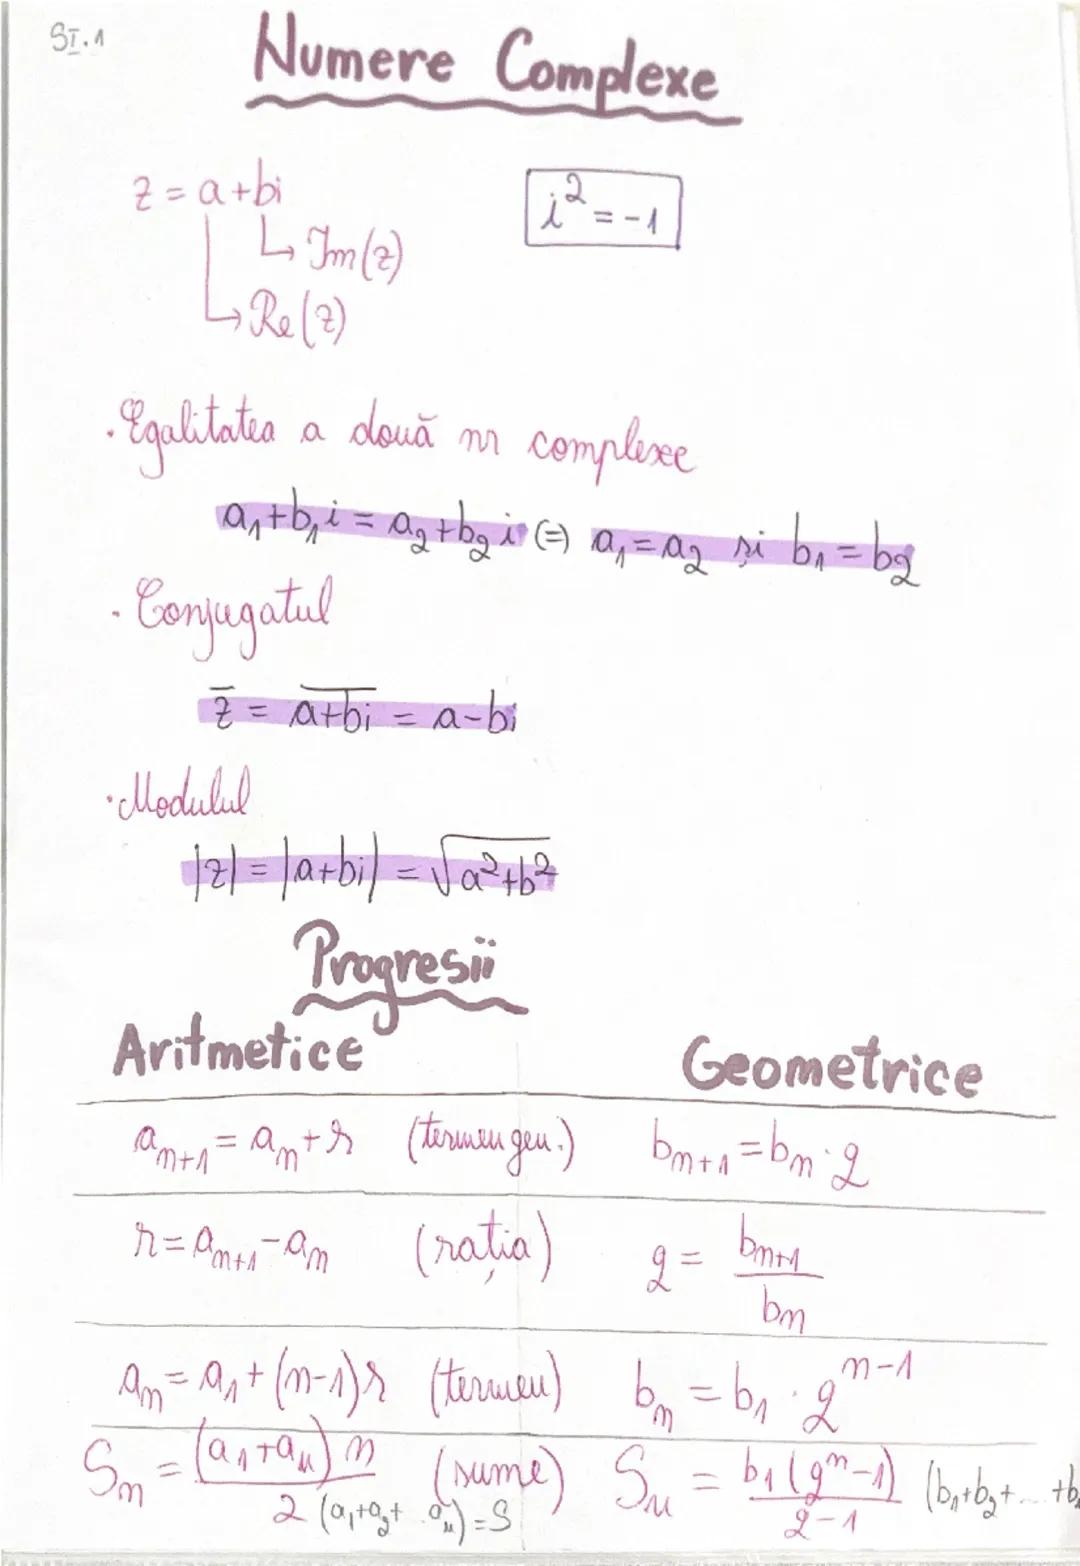 SI.1
Numere Complexe
z = a+bi
i² = -1
Im(z)
Re(z)
· Egalitatea a două nr complexe
a₁+b₁i = a₂+b₂i (=) a₁=a₂ și b₁=b₂
· Conjugatul
z̅ = a+bi̅ = a-bi
· Modulul
|z| = |a+bi| = √a²+b²
Progresii
Aritmetice Geometrice
aₙ₊₁ = aₙ+r (termen gen.) bₙ₊₁ = bₙ·q
r = aₙ₊₁-aₙ (rația) q = bₙ₊₁/bₙ
aₙ = a₁+(n-1)r (termen) bₙ = b₁·qⁿ⁻¹
Sₙ = (a₁+aₙ)n/2 (sume) Sₙ = b₁(qⁿ-1)/q-1 (b₁+b₂+...+b
(a₁+a₂+..aₙ)=S